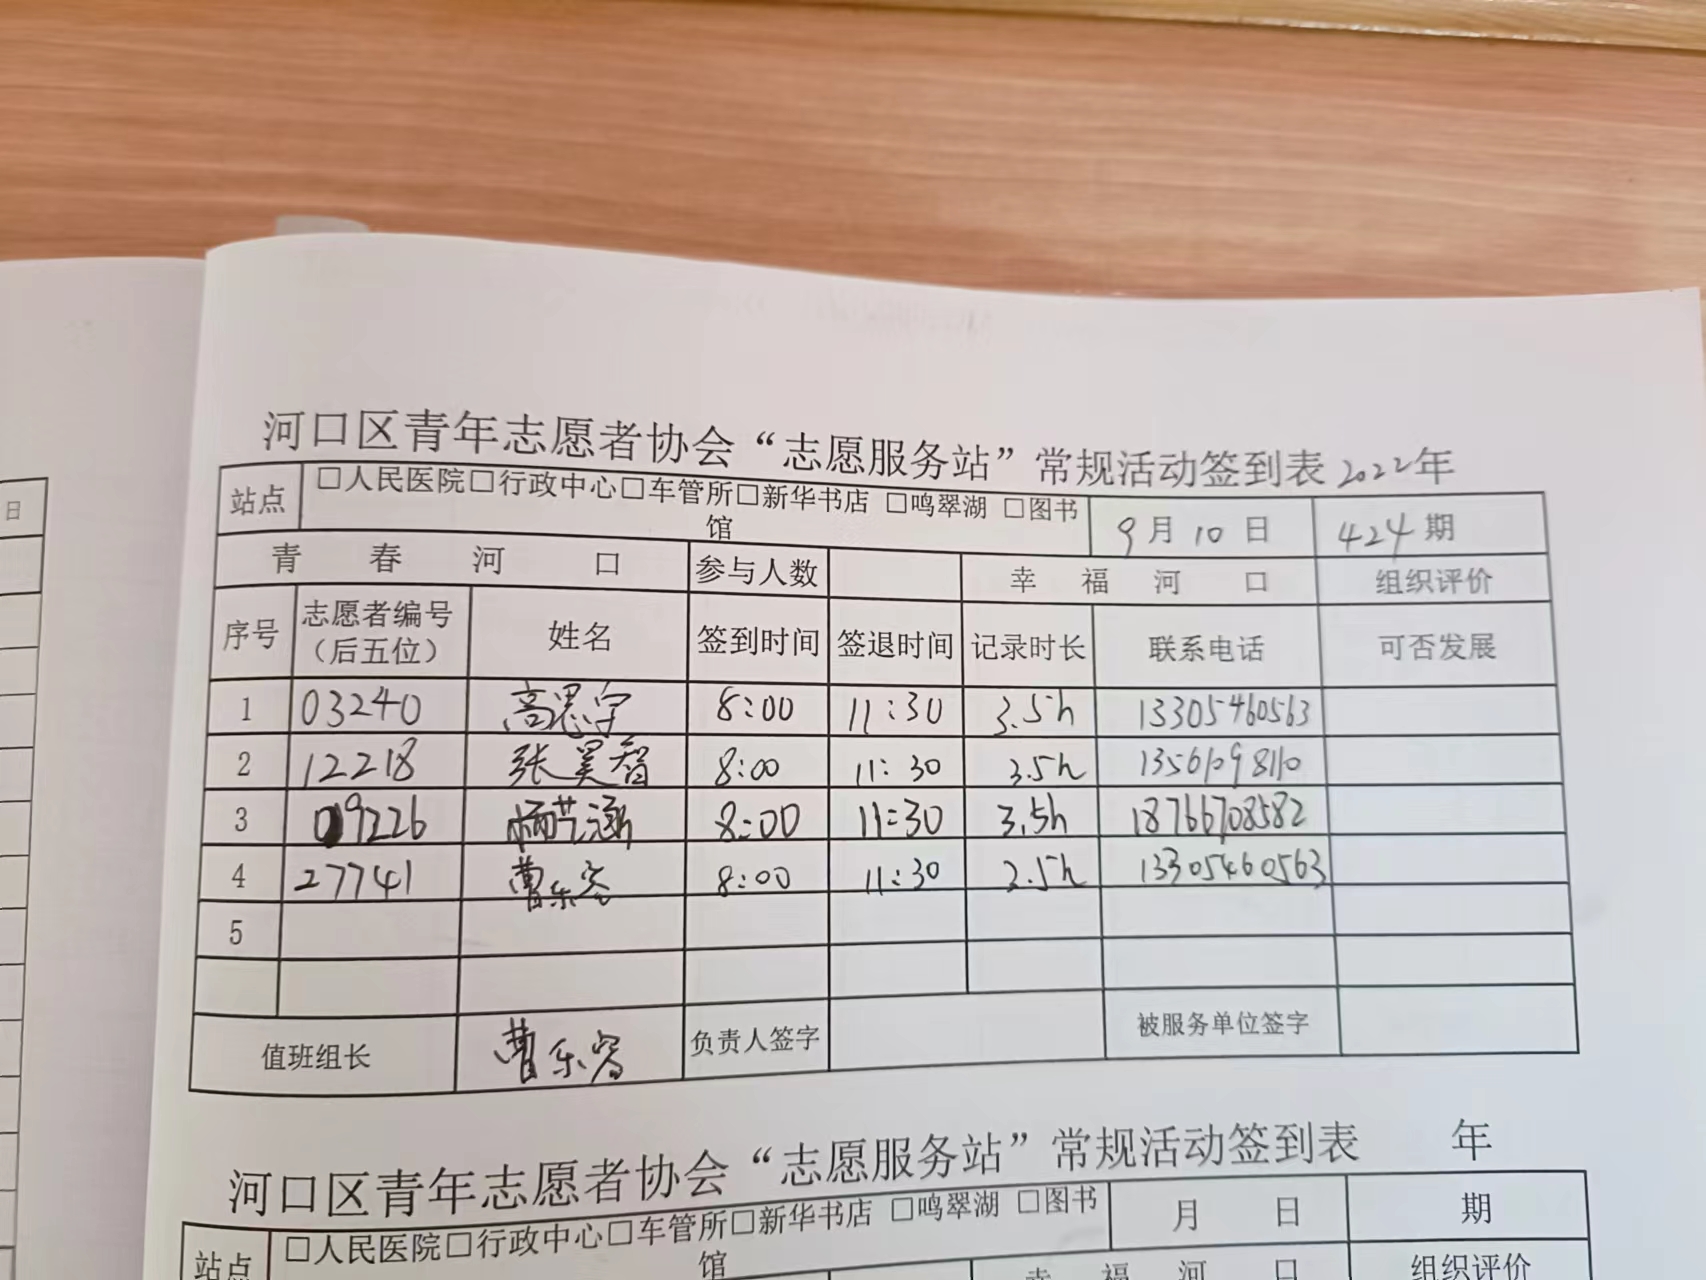 日
河口区青年志愿者协会“志愿服务站”常规活动签到表 2022年
站点 □人民医院□行政中心□车管所□新华书店 □鸣翠湖 □图书馆 9月10日 424期
青春河口 参与人数 幸福河口 组织评价
序号 志愿者编号（后五位） 姓名 签到时间 签退时间 记录时长 联系电话 可否发展
1 03240 高思宇 8:00 11:30 3.5h 13305460563
2 12218 张昊智 8:00 11:30 3.5h 13561098110
3 09226 8:00 11:30 3.5h 18766708582
4 27741 曹乐容 8:00 11:30 3.5h 13305460563
5
值班组长 曹乐容 负责人签字 被服务单位签字
河口区青年志愿者协会“志愿服务站”常规活动签到表 年
站点 □人民医院□行政中心□车管所□新华书店 □鸣翠湖 □图书馆 月 日 期
幸福河口 组织评价